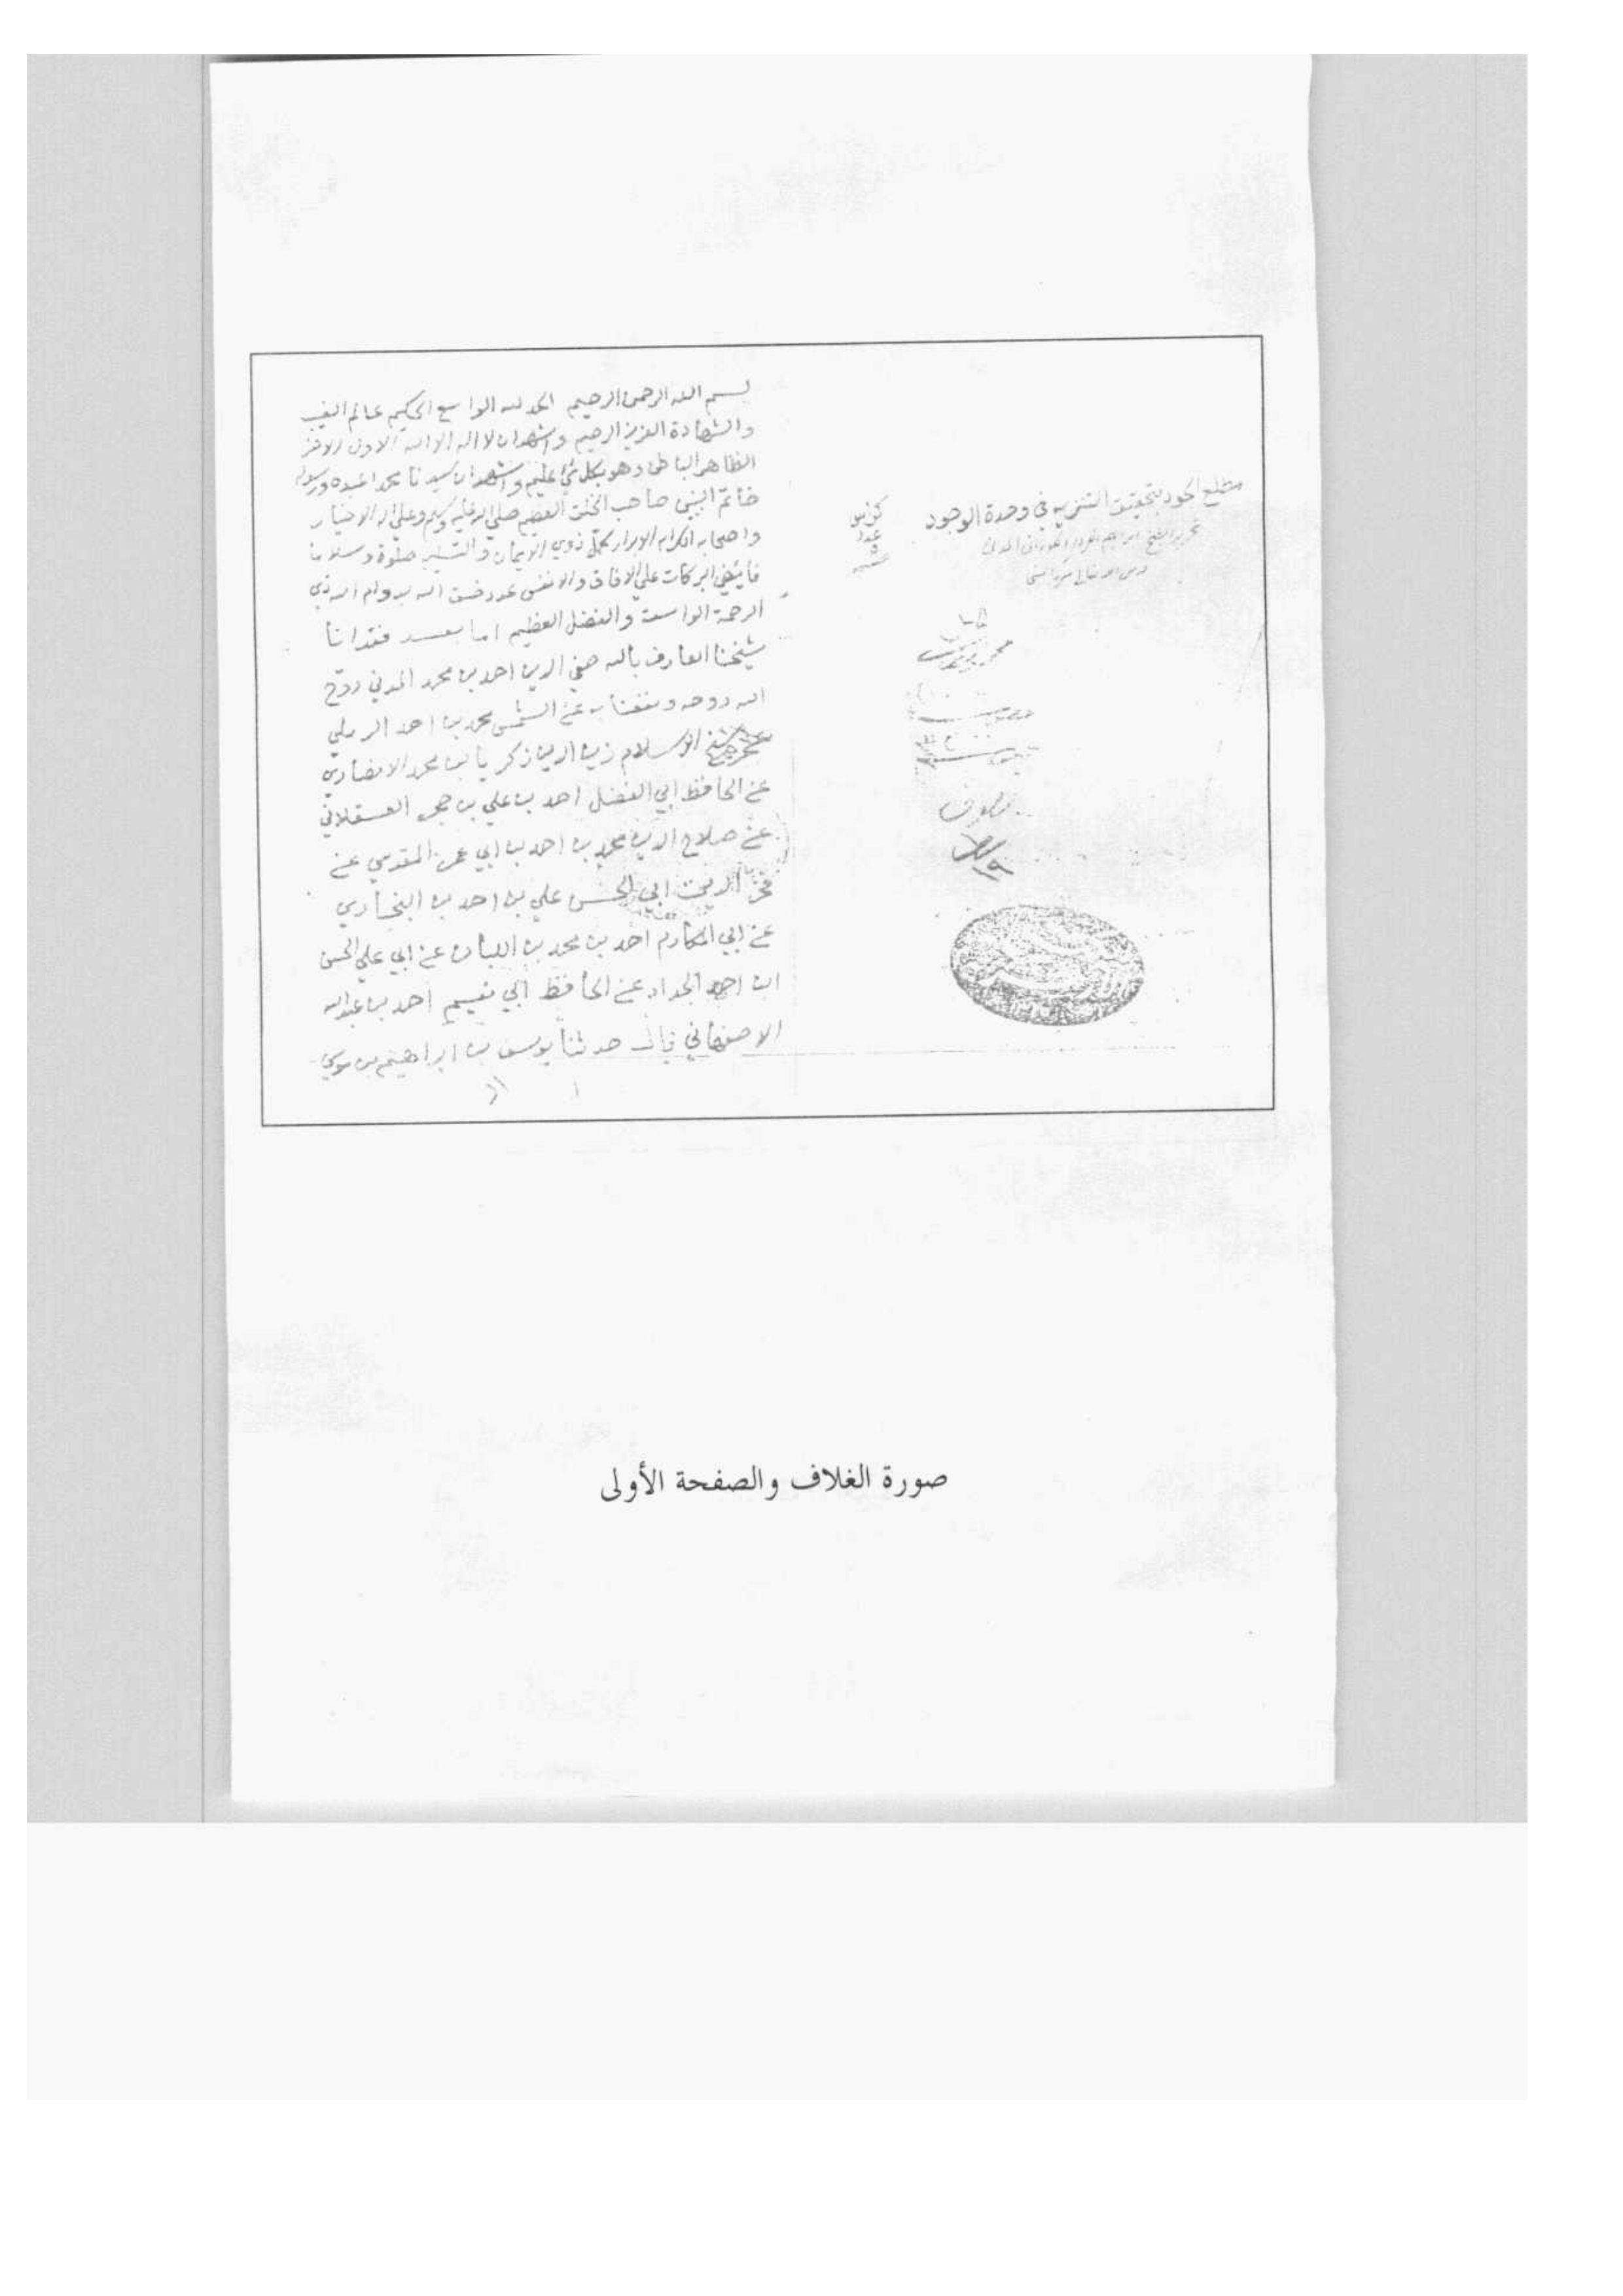 مطلع الجود بتحقيق التنزيه في وحدة الوجود
تحرير الشيخ ابراهيم الكوراني المدني
كراس
عدد
٥
بسم الله الرحمن الرحيم الحمد لله الواسع الحكيم عالم الغيب
والشهادة العزيز الرحيم واشهد ان لا اله الا الله الاول الاخر
الظاهر الباطن وهو بكل شيء عليم واشهد ان سيدنا محمدا عبده ورسوله
خاتم النبيين صاحب الخلق العظيم صلى الله عليه وسلم وعلى اله الاخيار
واصحابه الكرام الابرار كمل ذوي الايمان والتسليم صلوة وسلاما
فايضي البركات على الافاق والانفس عدد خلق الله بدوام الله ذي
الرحمة الواسعة والفضل العظيم اما بعد فقد انا
شيخنا العارف بالله صفي الدين احمد بن محمد المدني روّح
الله روحه ونفعنا به عن الشمس محمد بن احمد الرملي
عن شيخ الاسلام زين الدين زكريا بن محمد الانصاري
عن الحافظ ابي الفضل احمد بن علي بن حجر العسقلاني
عن صلاح الدين محمد بن احمد بن ابي عمر المقدسي عن
فخر الدين ابي الحسن علي بن احمد بن البخاري
عن ابي المكارم احمد بن محمد بن اللبان عن ابي علي الحسن
ابن احمد الحداد عن الحافظ ابي نعيم احمد بن عبد الله
الاصفهاني قال حدثنا يوسف بن ابراهيم بن موسى
صورة الغلاف والصفحة الأولى